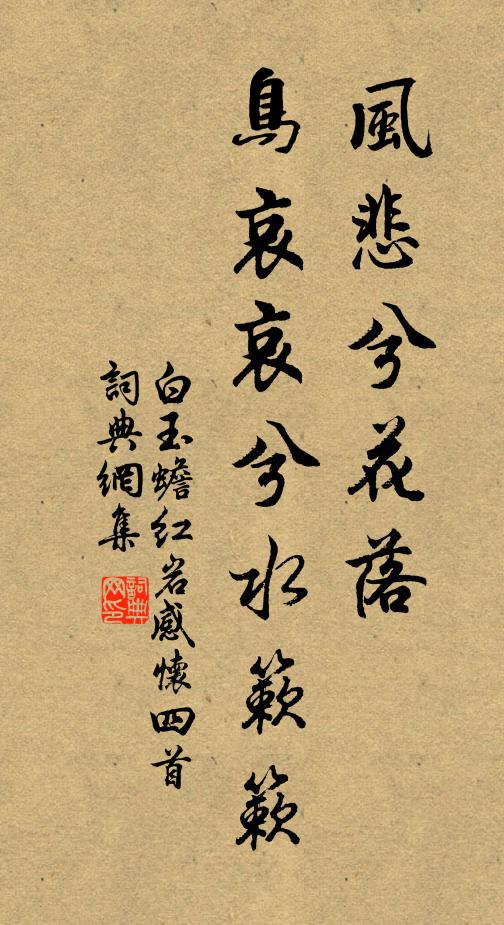 風悲兮花落
鳥哀哀兮水簌簌
白玉蟾紅岩感懷四首
詞典網集
詞典
网印